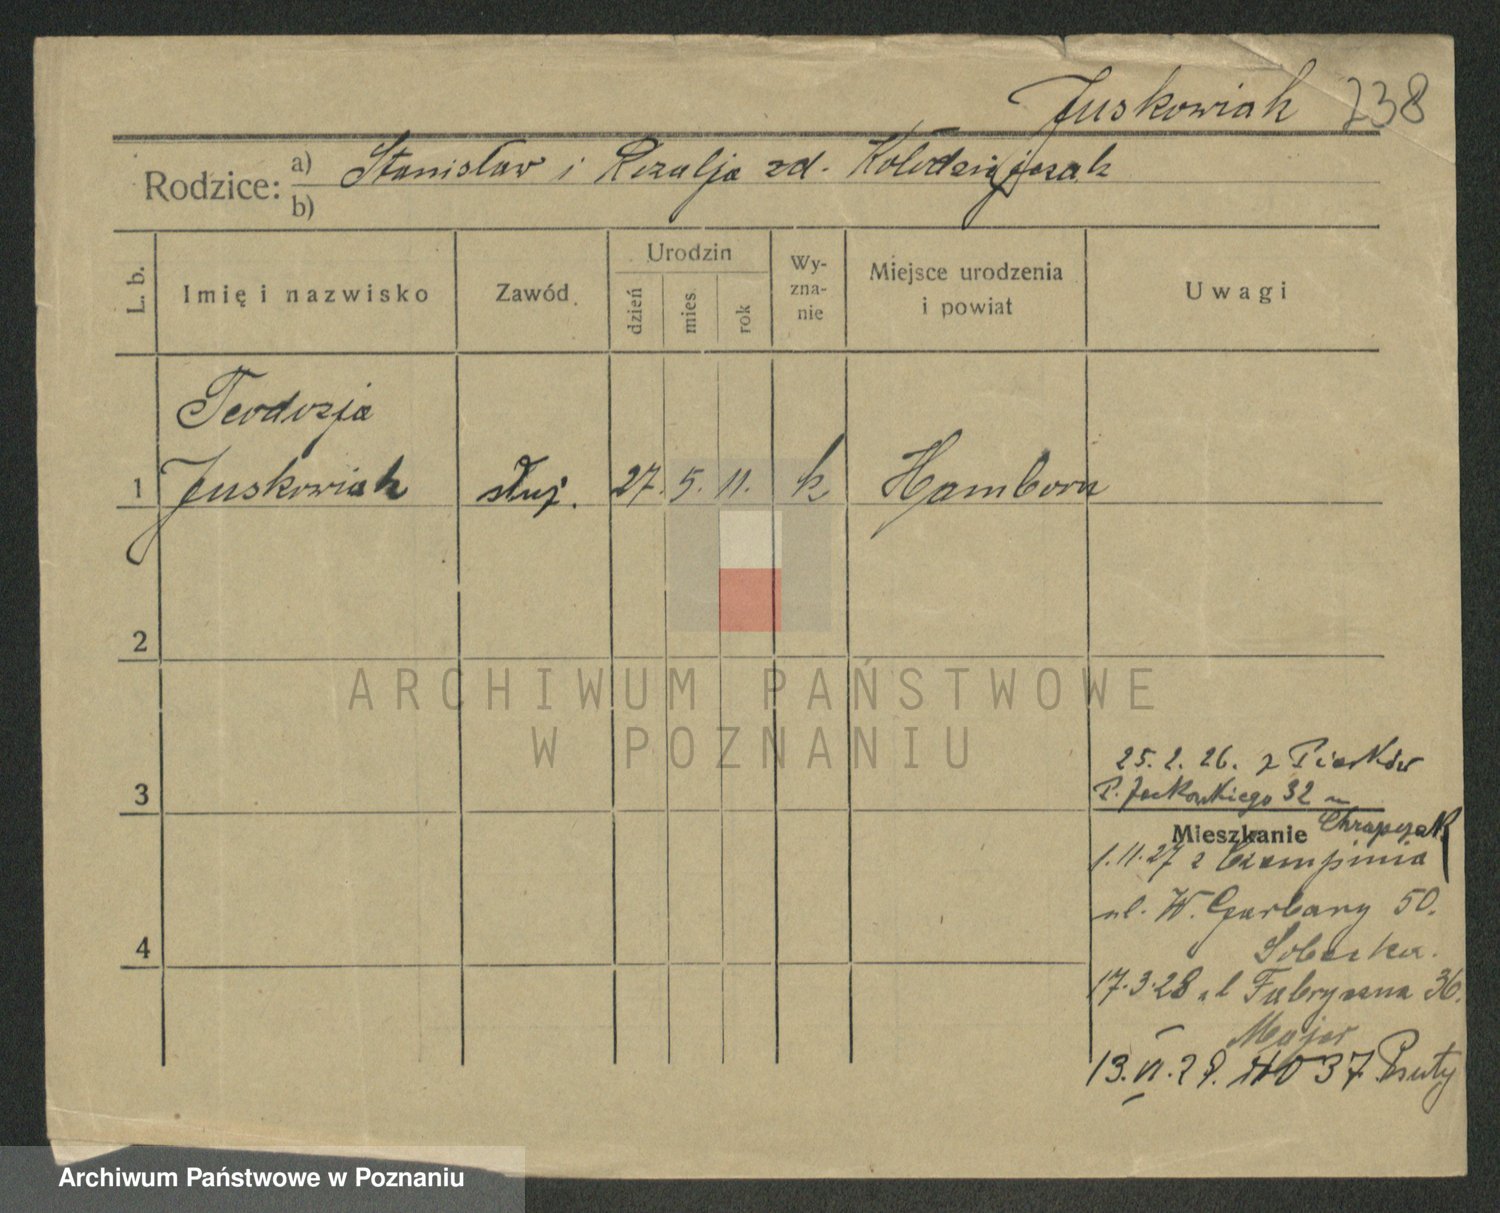 Juskowiak 738
Rodzice: a) Stanisław i Rozalja zd. Kołodziejczak
b)
L. b. Imię i nazwisko Zawód Urodzin dzień mies. rok Wyznanie Miejsce urodzenia i powiat Uwagi
Teodozja
1 Juskowiak służ. 27. 5. 11. k Hamborn
2
ARCHIWUM PAŃSTWOWE
W POZNANIU
25. 2. 26. z Piasków
3 P. Jackowskiego 32
Mieszkanie Chrapczak
1.11.27 z Czempinia
ul. W. Garbary 50.
4 Sobecka.
17.3.28 ul Fabryczna 36.
Majer
13. VI. 28. 37
Archiwum Państwowe w Poznaniu